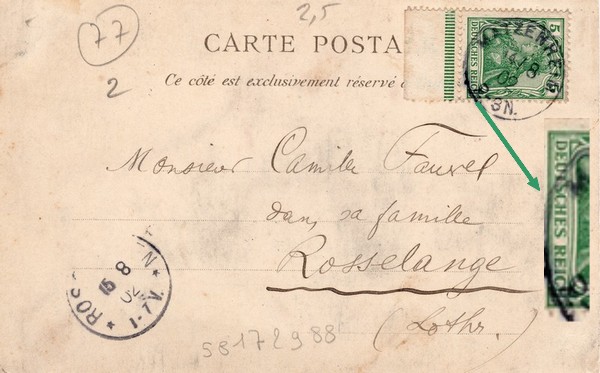 77
2
2,5
CARTE POSTA
Ce côté est exclusivement réservé
5
DEUTSCHES REICH
BHN.
DEUTSCHES REICH
Monsieur Camille Fauvel
dans sa famille
Rosselange
(Lothr.)
ROS
15 8
1-7V.
58172988